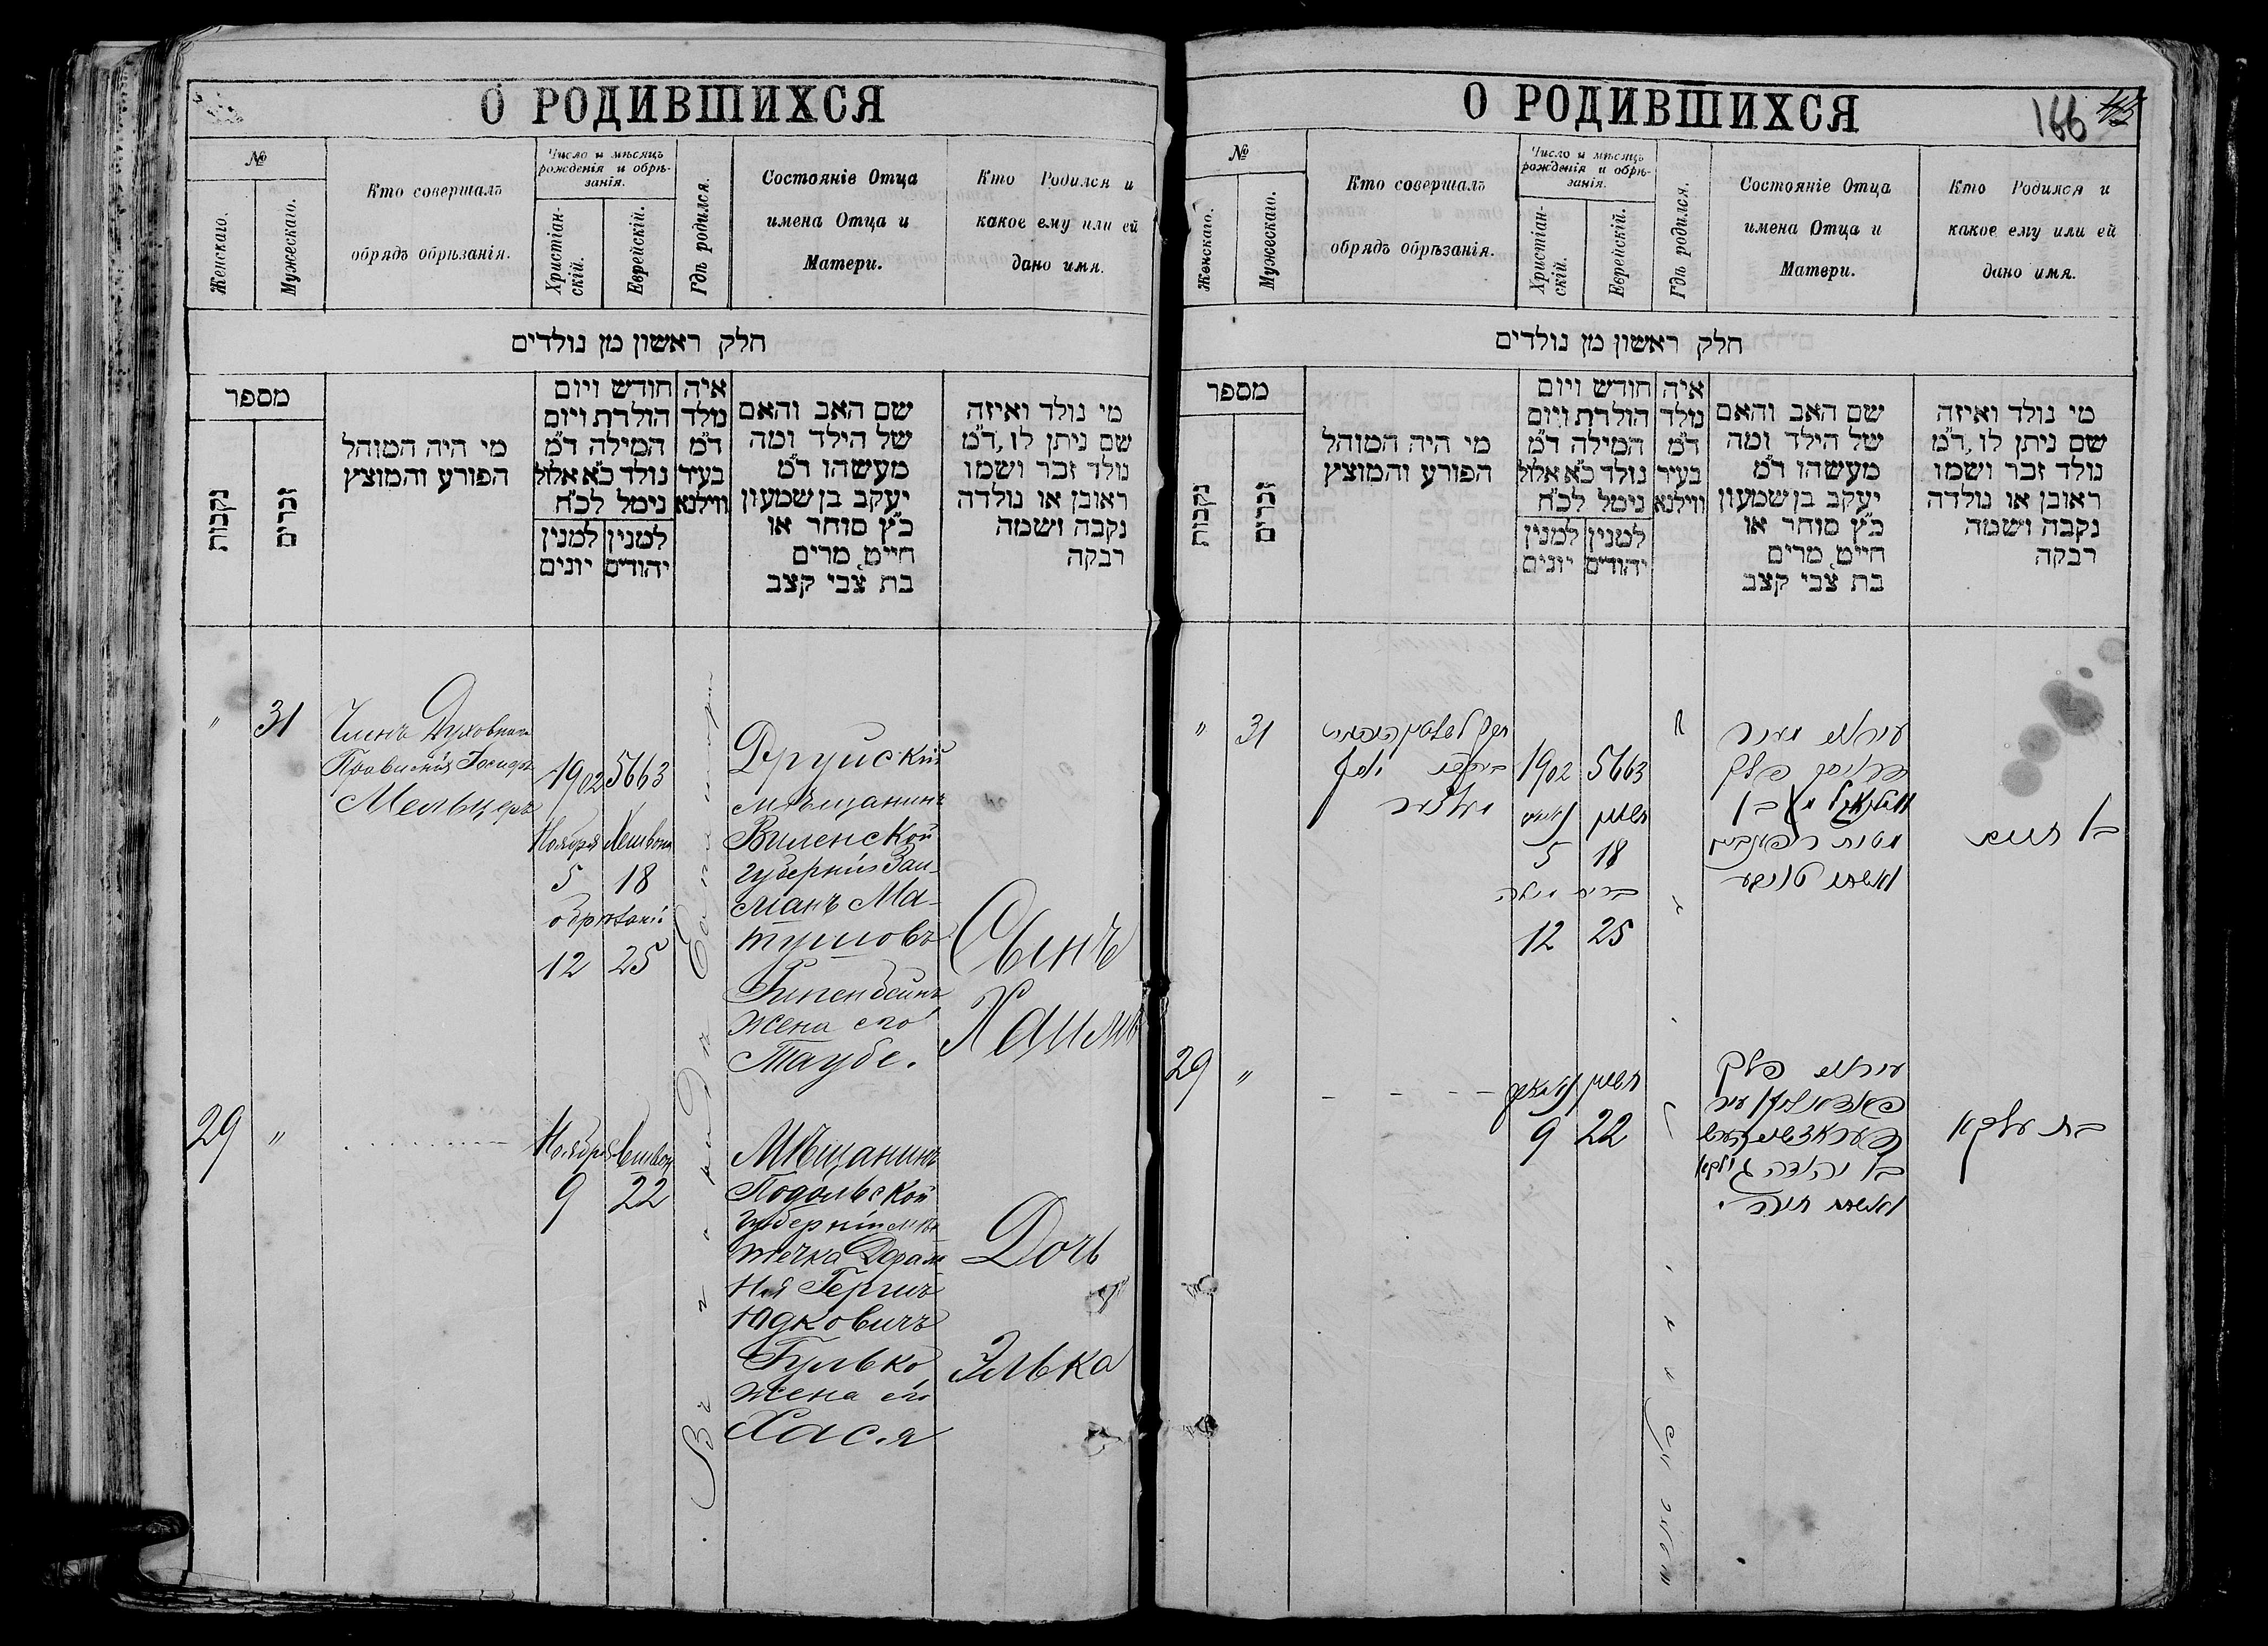 О РОДИВШИХСЯ
№
Женскаго.
Мужескаго.
Кто совершалъ
обрядъ обрѣзанія.
Число и мѣсяцъ
рожденія и обрѣ-
занія.
Христіан-
скій.
Еврейскій.
Гдѣ родился.
Состояніе Отца
имена Отца и
Матери.
Кто Родился и
какое ему или ей
дано имя.
חלק ראשון מן נולדים
מספר
נקבות
זכרים
מי היה המוהל
הפורע והמוצץ
חודש ויום
הולדת ויום
המילה ד״מ
נולד כ״א אלול
נימל לכ״ח
למנין
יהודים
למנין
יונים
איה
נולד
ד״מ
בעיר
ווילנא
שם האב והאם
של הילד ומה
מעשהו ד״מ
יעקב בן שמעון
כ״ץ סוחר או
חייט, מרים
בת צבי קצב
מי נולד ואיזה
שם ניתן לו, ד״מ
נולד זכר ושמו
ראובן או נולדה
נקבה ושמה
רבקה
" 31
Членъ Духовнаго
Правленія
Мельцеръ
1902 5663
Ноября Хешвона
5 18
обрѣзаніе
12 25
Друйскій
мѣщанинъ
Виленской
губерніи Зал-
манъ Ма-
тушовъ
жена его
Таубе.
Сынъ
Хаимъ
29 "
Ноября Хешвон
9 22
Мѣщанинъ
Подольской
губерніи мѣс
течка Дераж
ня Гершъ
Юдковичъ
Гулько
жена его
Хася
Дочь
Элька
О РОДИВШИХСЯ
166
№
Женскаго.
Мужескаго.
Кто совершалъ
обрядъ обрѣзанія.
Число и мѣсяцъ
рожденія и обрѣ-
занія.
Христіан-
скій.
Еврейскій.
Гдѣ родился.
Состояніе Отца
имена Отца и
Матери.
Кто Родился и
какое ему или ей
дано имя.
חלק ראשון מן נולדים
מספר
נקבות
זכרים
מי היה המוהל
הפורע והמוצץ
חודש ויום
הולדת ויום
המילה ד״מ
נולד כ״א אלול
נימל לכ״ח
למנין
יהודים
למנין
יונים
איה
נולד
ד״מ
בעיר
ווילנא
שם האב והאם
של הילד ומה
מעשהו ד״מ
יעקב בן שמעון
כ״ץ סוחר או
חייט, מרים
בת צבי קצב
מי נולד ואיזה
שם ניתן לו, ד״מ
נולד זכר ושמו
ראובן או נולדה
נקבה ושמה
רבקה
" 31
1902 5663
חשון
5 18
ברית מילה
12 25
עירוני מעיר
פלך
ואשתו טויבע
בן חיים
29 "
חשון
9 22
עירוני פלך
פאדאליען עיר
בן יהודה גולקא
ואשתו חיה
בת עלקא